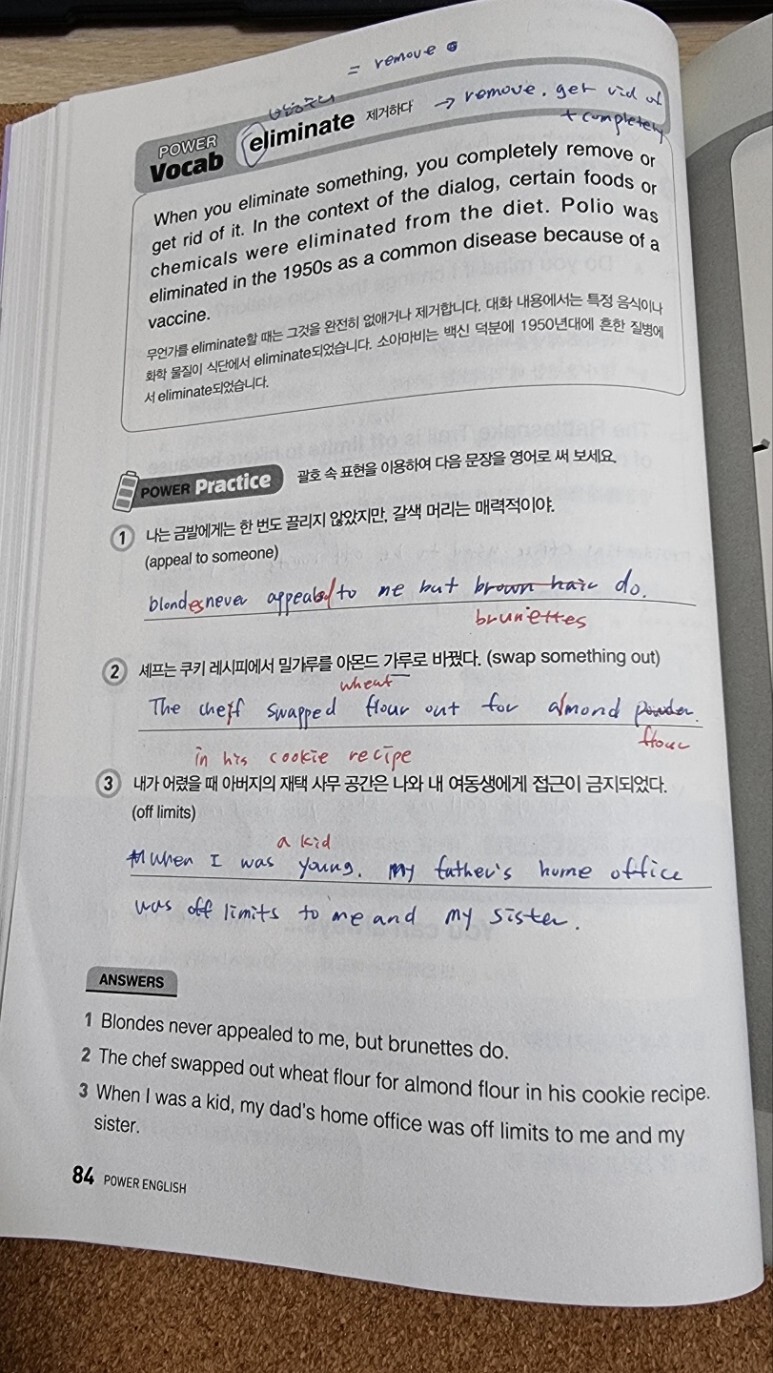 = remove
POWER Vocab eliminate 제거하다 → remove. get rid of
+ completely
When you eliminate something, you completely remove or
get rid of it. In the context of the dialog, certain foods or
chemicals were eliminated from the diet. Polio was
eliminated in the 1950s as a common disease because of a
vaccine.
무언가를 eliminate할 때는 그것을 완전히 없애거나 제거합니다. 대화 내용에서는 특정 음식이나
화학 물질이 식단에서 eliminate되었습니다. 소아마비는 백신 덕분에 1950년대에 흔한 질병에
서 eliminate되었습니다.
POWER Practice 괄호 속 표현을 이용하여 다음 문장을 영어로 써 보세요.
1 나는 금발에게는 한 번도 끌리지 않았지만, 갈색 머리는 매력적이야.
(appeal to someone)
blondes never appealed to me but brown hair do.
brunettes
2 셰프는 쿠키 레시피에서 밀가루를 아몬드 가루로 바꿨다. (swap something out)
wheat
The cheff swapped flour out for almond powder.
flour
in his cookie recipe
3 내가 어렸을 때 아버지의 재택 사무 공간은 나와 내 여동생에게 접근이 금지되었다.
(off limits)
a kid
When I was young. my father's home office
was off limits to me and my sister.
ANSWERS
1 Blondes never appealed to me, but brunettes do.
2 The chef swapped out wheat flour for almond flour in his cookie recipe.
3 When I was a kid, my dad's home office was off limits to me and my
sister.
84 POWER ENGLISH